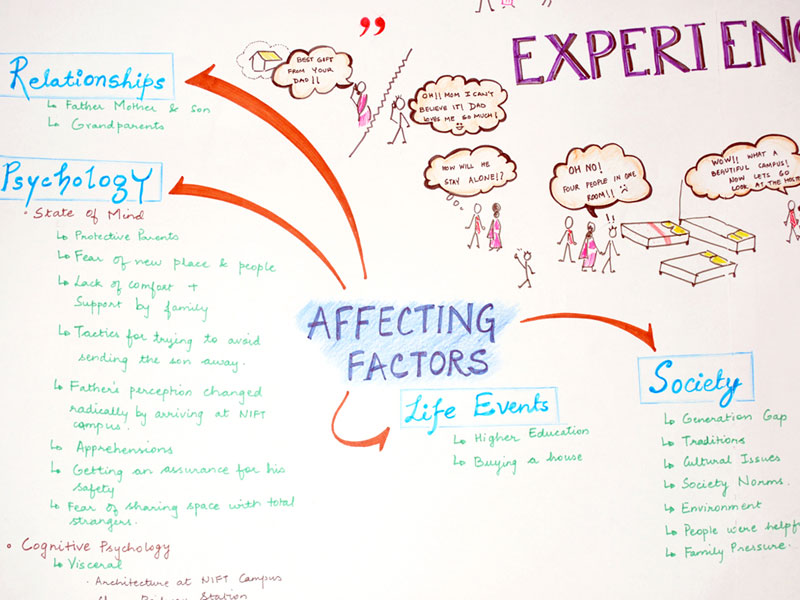 ”
EXPERIENC
BEST GIFT
FROM YOUR
DAD!!
OH!! MOM I CAN'T
BELIEVE IT! DAD
LOVES ME SO MUCH!
HOW WILL HE
STAY ALONE!?
OH NO!
FOUR PEOPLE IN ONE
ROOM!!
!!
WOW!! WHAT A
BEAUTIFUL CAMPUS!
NOW LETS GO
LOOK AT THE HOSTE
Relationships
Father Mother & son
Grandparents
Psychology
State of Mind
Protective Parents
Fear of new place & people
Lack of comfort +
Support by family
Tactics for trying to avoid
sending the son away.
Father's perception changed
radically by arriving at NIFT
campus.
Apprehensions
Getting an assurance for his
safety
Fear of sharing space with total
strangers.
Cognitive Psychology
Visceral
Architecture at NIFT Campus
Station
AFFECTING
FACTORS
Life Events
Higher Education
Buying a house
Society
Generation Gap
Traditions
Cultural Issues
Society Norms.
Environment
People were helpf
Family Pressure.